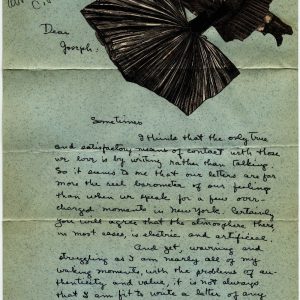 Dear
Joseph:
Sometimes
I think that the only true
and satisfactory means of contact with those
we love is by writing rather than talking.
So it seems to me that our letters are far
more the real barometer of our feelings
than when we speak for a few over-
charged moments in New York. Certainly
you will agree that the atmosphere there
in most cases, is electric and artificial.
And yet, warring and
struggling as I am nearly all of my
waking moments, with the problems of au-
thenticity and value, it is not always
that I am fit to write a letter of any